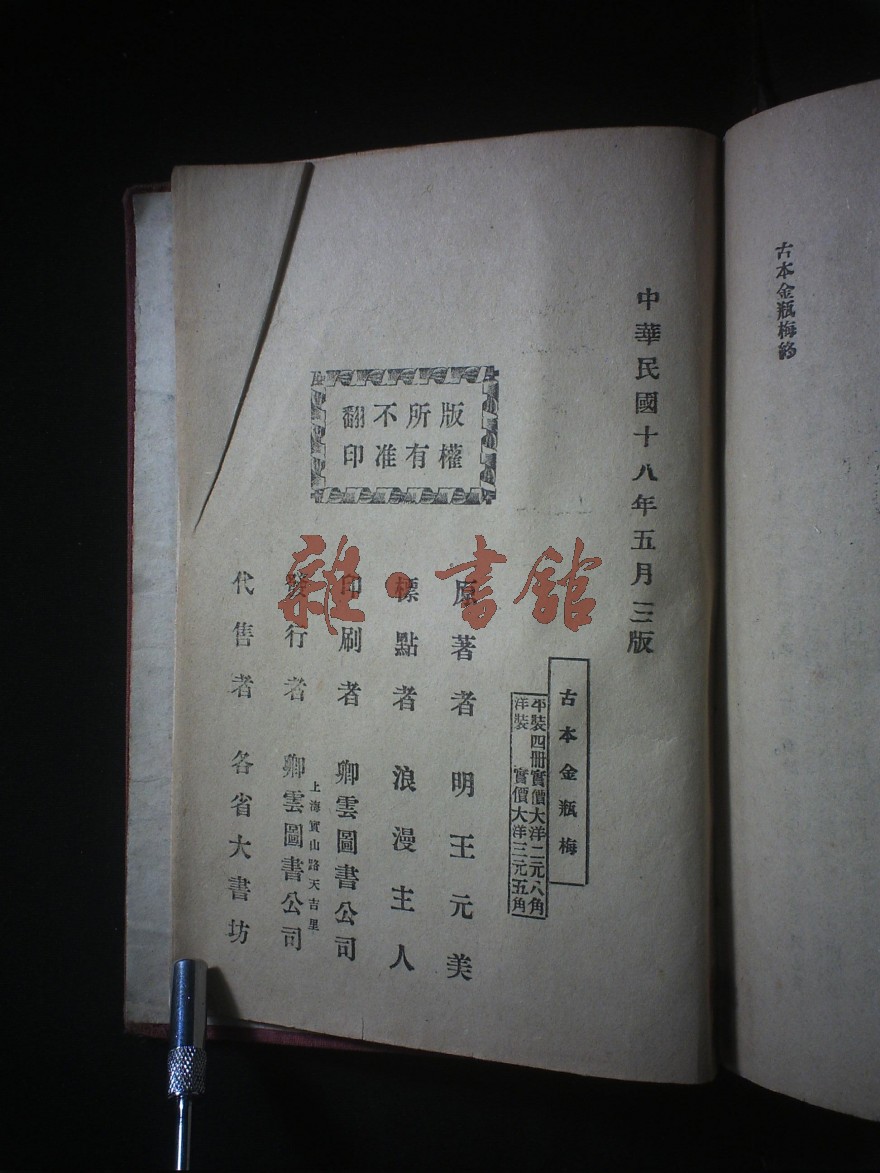 古本金瓶梅終
中華民國十八年五月三版
古本金瓶梅
平裝四冊實價大洋二元八角
洋裝 實價大洋三元五角
版權
所有
不准
翻印
原著者 明王元美
標點者 浪漫主人
印刷者 卿雲圖書公司
上海寶山路天吉里
發行者 卿雲圖書公司
代售者 各省大書坊
雜·書館